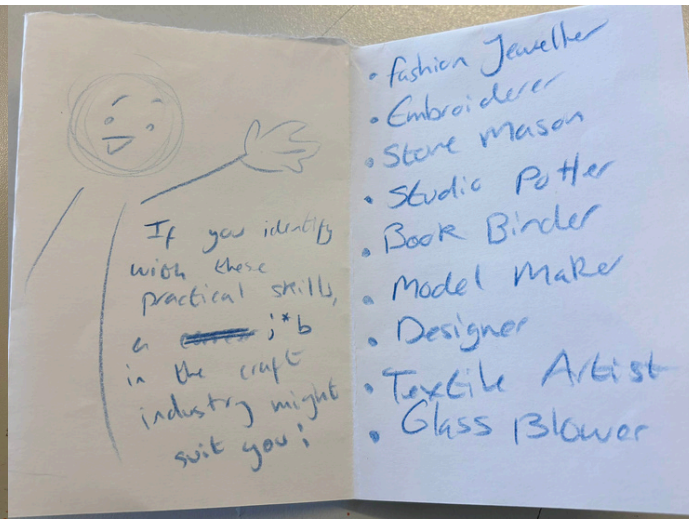 If you identify
with these
practical skills,
a ;*b
in the craft
industry might
suit you!
• Fashion Jeweller
• Embroiderer
• Stone Mason
• Studio Potter
• Book Binder
• Model Maker
• Designer
• Textile Artist
• Glass Blower